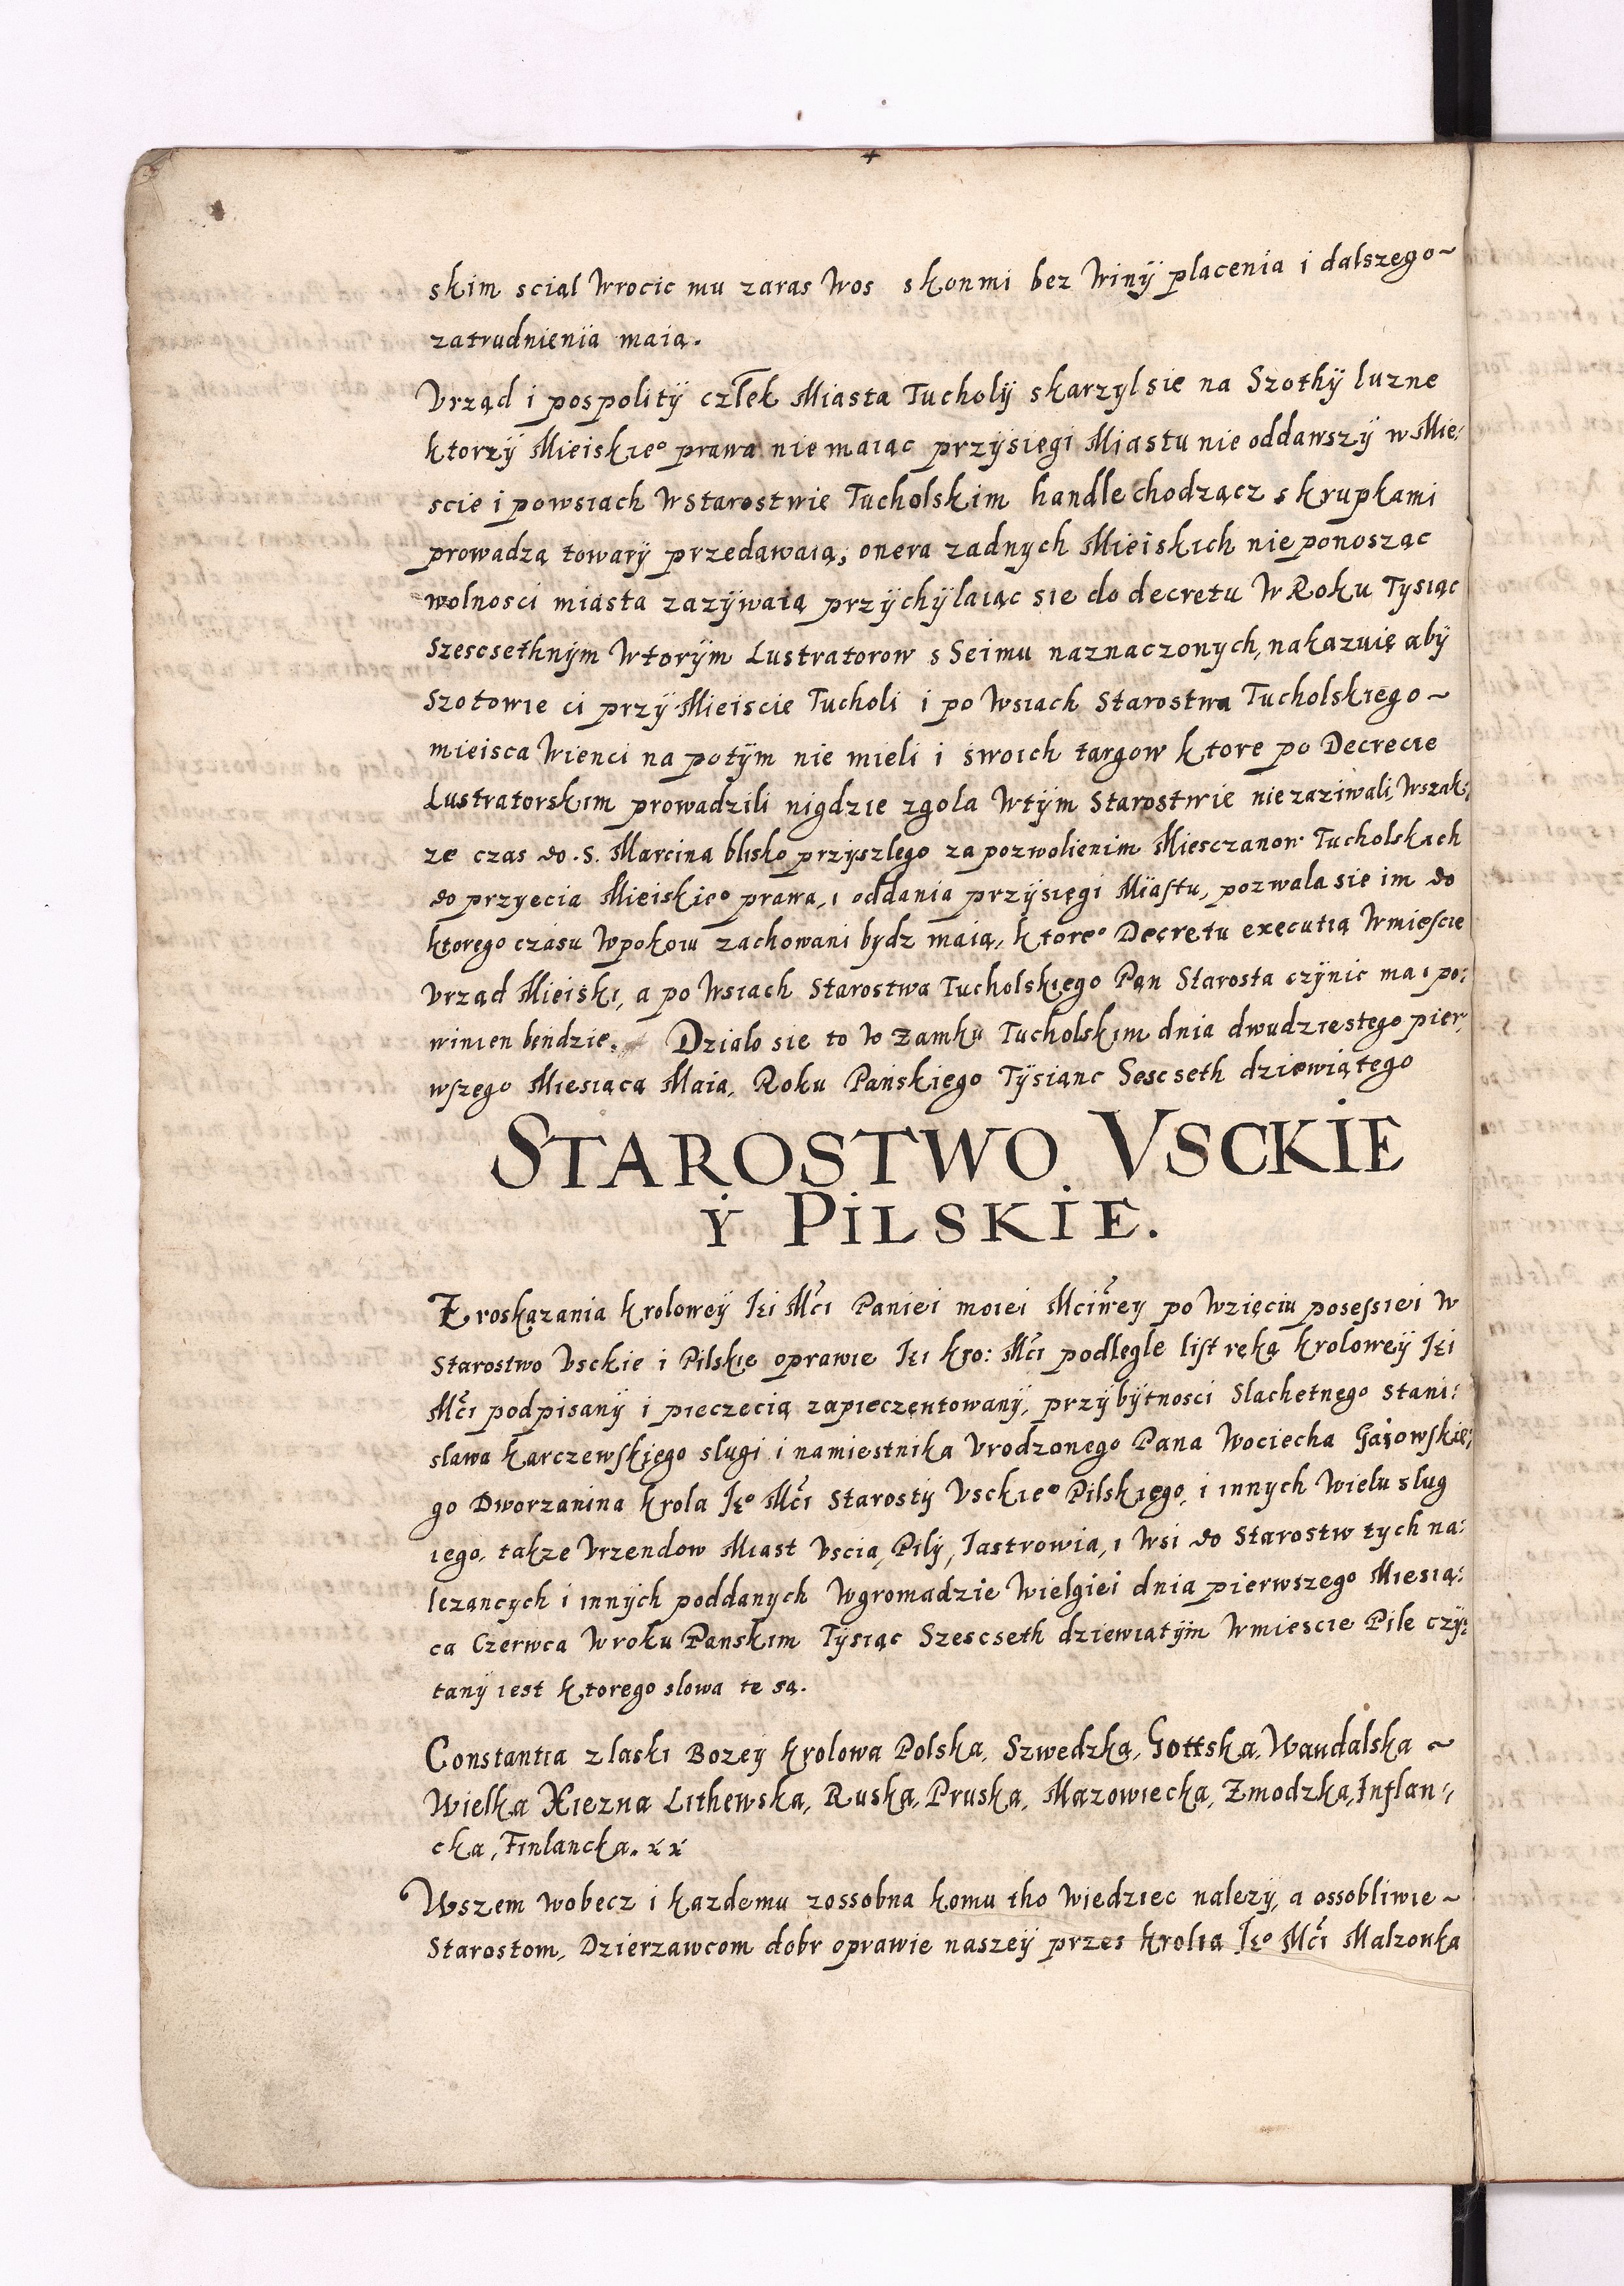 skim sciąl Wrocic mu zaras Wos skonmi bez Winÿ placenia i dalszego~
zatrudnieniia maią.
Vrząd i pospolitÿ człek Miasta Tucholÿ skarzÿl sie na Szothÿ luzne
ktorzÿ Mieiskieº prawa nie maiąc przÿsięgi Miastu nie oddawszÿ w Mie:
scie i powsiach W Starostwie Tucholskim handle chodzącz s krupkami
prowadzą towarÿ przedawaią, onera zadnych Mieiskich nie ponosząc
wolnosci miasta zazÿwaią przÿchÿlaiąc sie do decretu W Roku Tysiąc
Szescsethnÿm Wtorÿm Lustratorow s Seimu naznaczonych, nakazuię abÿ
Szotowie ci przÿ Mieiscie Tucholi i po Wsiach Starostwa Tucholskiego~
mieisca Wienci na potÿm nie mieli i swoich targow ktore po Decrecie
Lustratorskim prowadzili nigdzie zgola Wtÿm Starostwie nie zaziwali, Wszak:
ze czas do. S. Marcina blisko przÿszlego za pozwolienim Miesczanow Tucholskich
do przyęcia Mieiskieº prawa, i oddania przÿsięgi Miastu, pozwala sie im do
ktorego czasu Wpokoiu zachowani bydz maią, ktoreº Decretu executią Wmiescie
Vrząd Mieiski, a po Wsiach Starostwa Tucholskięgo Pan Starosta czÿnic ma i po:
winien bendzie. Dzialo sie to W Zamku Tucholskim dnia dwudziestego pier,
wszego Miesiąca Maia, Roku Pańskiego Tÿsianc Sescseth dziewiątego
STAROSTWO VSCKIE
Ÿ PILSKIE.
Z roskązania Krolowеÿ Jęi Mci Paniei moiei Mciwey po Wzięciu posessiei W
Starostwo Vsckie i Pilskie oprawie Jęi Kro: Mci podlegle list ręką Krolowеÿ Jęi
Mci podpisanÿ i pieczecią zapieczentowanÿ, przÿ bÿtnosci Slachetnego Stani:
slawa Karczewskięgo slugi i namiestnika Vrodzonego Pana Wociecha Gaiowskie:
go Dworzanina Krola Jęº Mci Starostÿ Vsckieº Pilskięgo, i innych Wielu slug
iego, takze Vrzendow Miast Vscia, Pilÿ, Jastrowia, i Wsi do Starostw tych na:
lezancych i innych poddanych Wgromadzie Wielgiei dnia pierwszego Miesią:
ca Czerwca W roku Panskim Tÿsiąc Szescseth dziewiątÿm Wmiescie Pile czÿ:
tanÿ iest ktorego slowa te są.
Constantia z laski Bozeÿ Krolowa Polska, Szwedzką, Gottska, Wandalska ~
Wielka Xiezna Lithewska, Ruska, Pruska, Mazowiecka, Zmodzka, Inflan:
cka, Finlancka. xx
Wszem wobecz i kazdemu zossobna komu tho Wiedziec nalezÿ, a ossobliwie~
Starostom, Dzierzawcom dobr oprawie naszeÿ przes Krolia Jęº Mci Malzonka